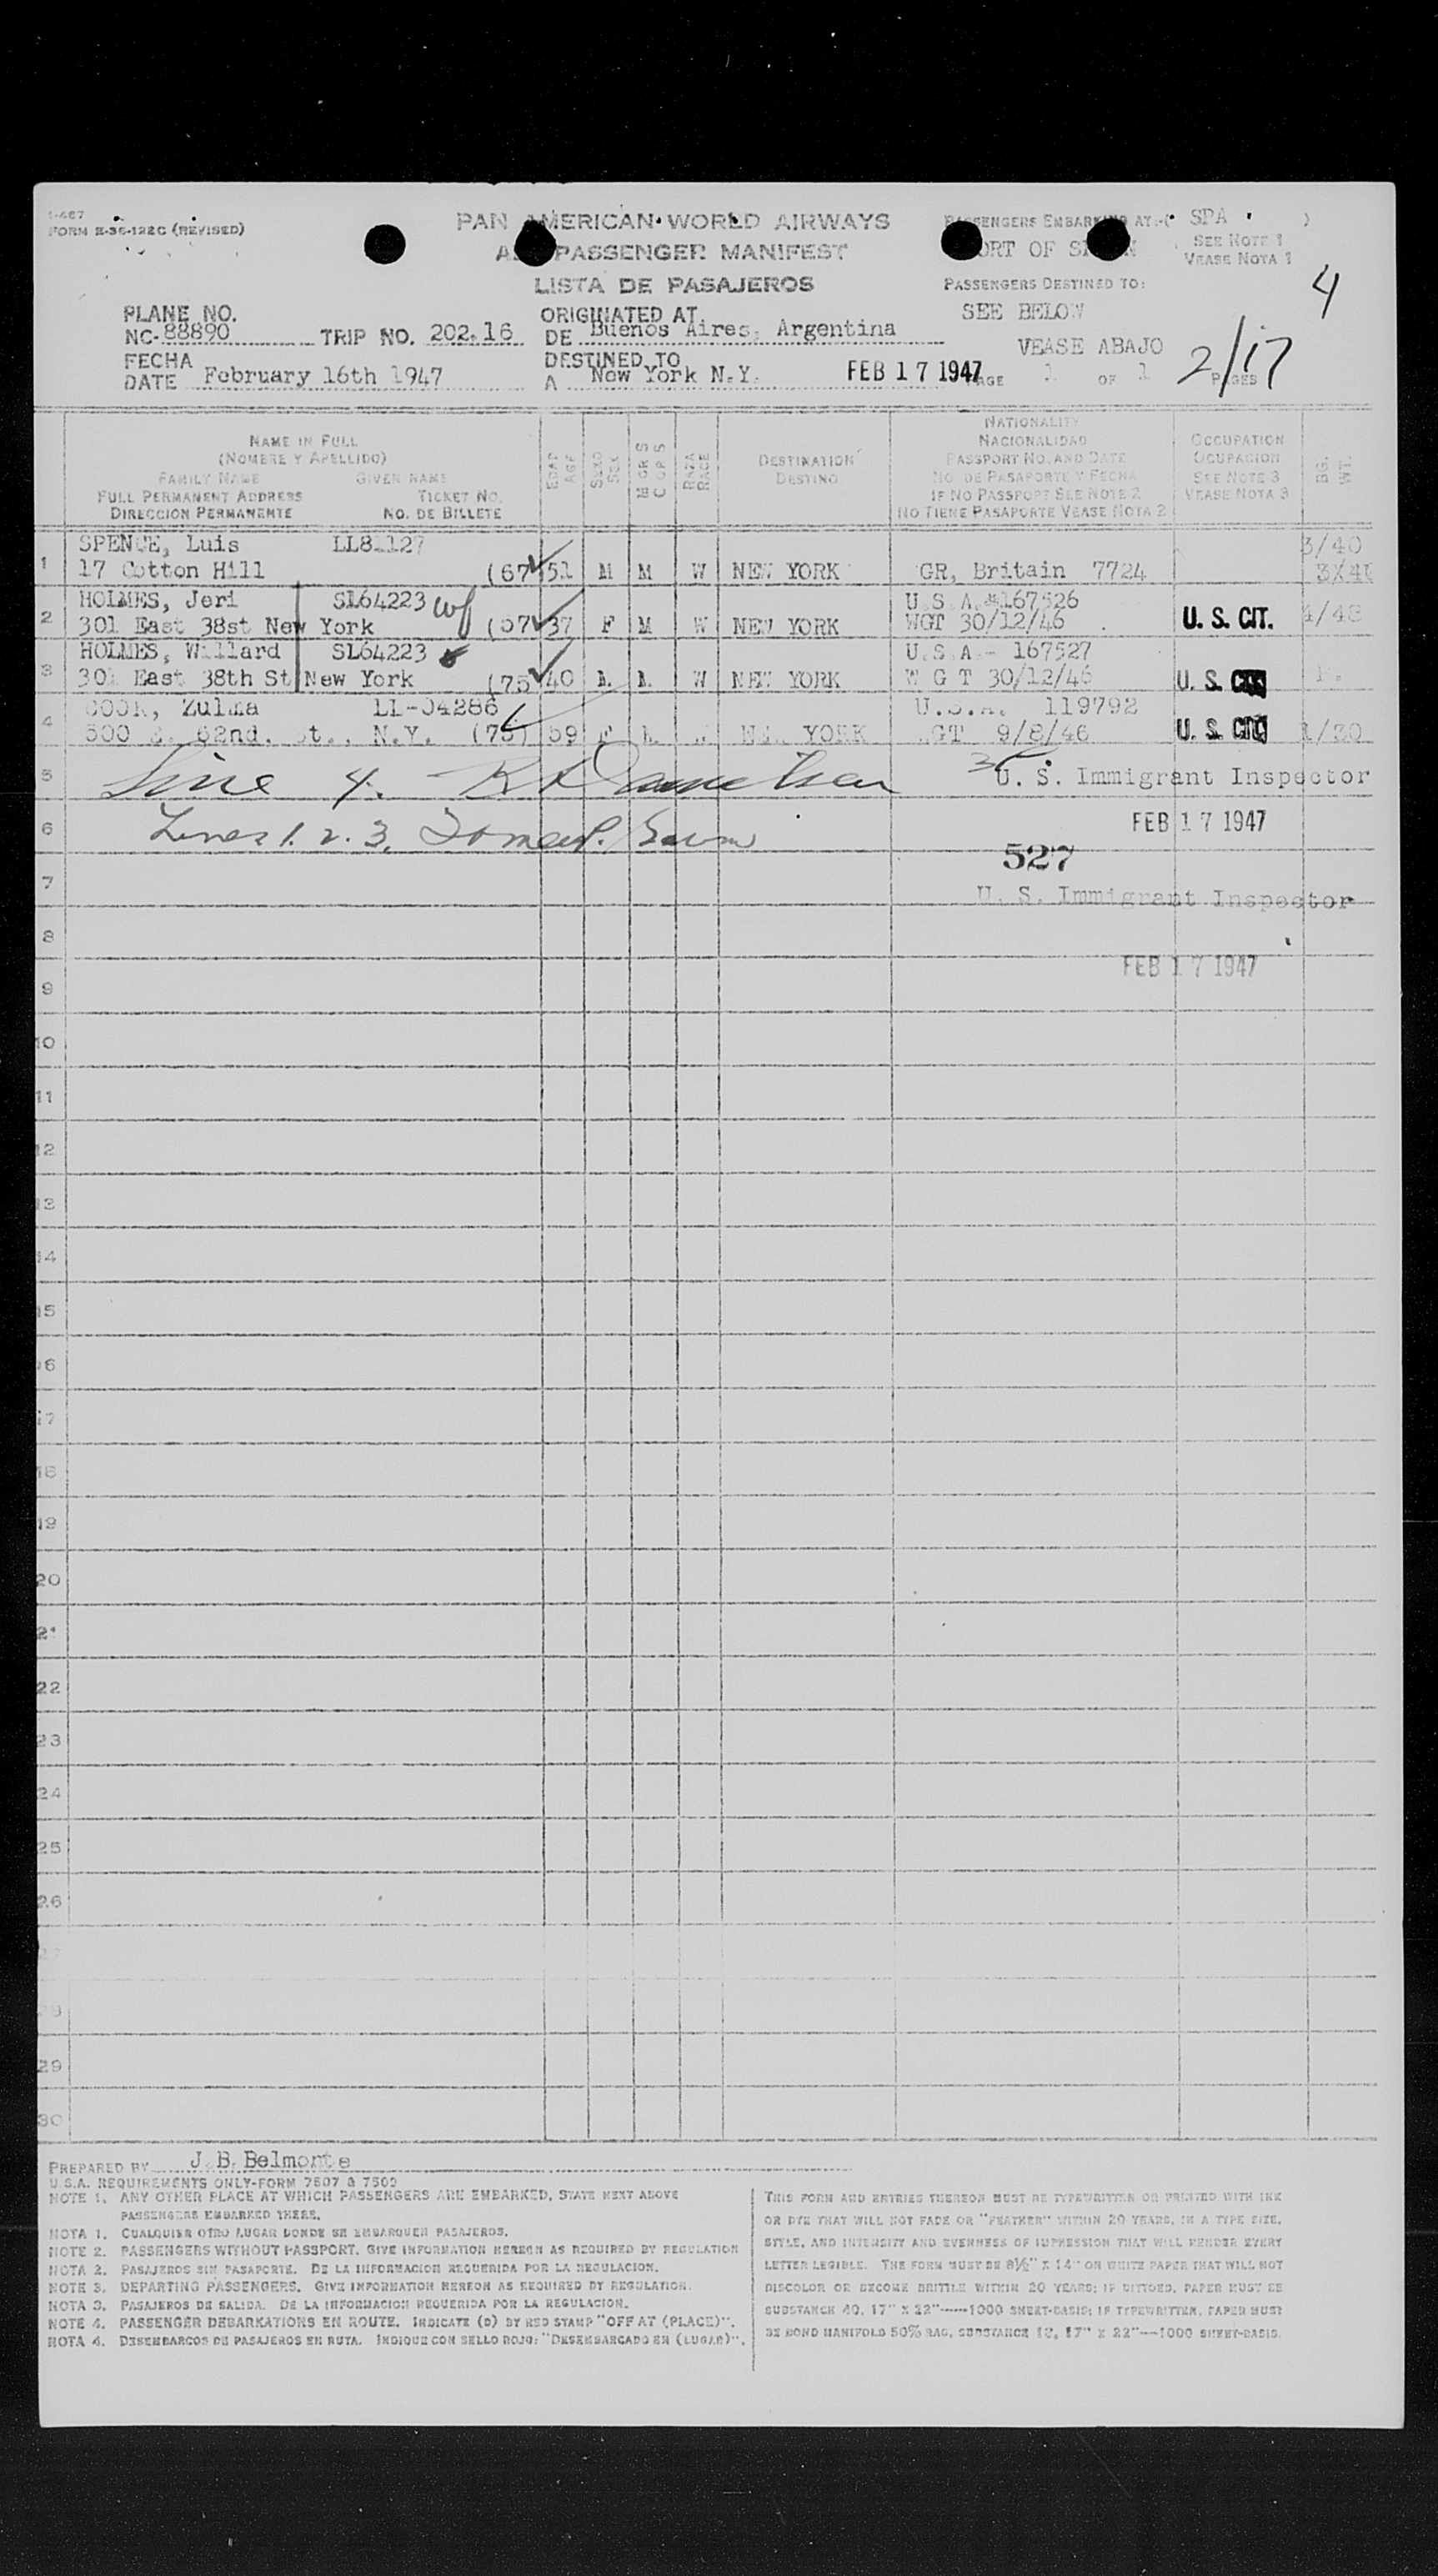 I-487
FORM E-36-122C (REVISED)
PAN AMERICAN WORLD AIRWAYS
PASSENGER MANIFEST
LISTA DE PASAJEROS
AT:-( SPA )
SEE NOTE 1
VEASE NOTA 1
PORT OF
PASSENGERS DESTINED TO:
SEE BELOW
VEASE ABAJO
4
2/17
PLANE NO.
NC-88890 TRIP NO. 202.16
ORIGINATED AT
DE Buenos Aires, Argentina
FECHA
DATE February 16th 1947
DESTINED TO
A New York N.Y.
FEB 17 1947
PAGE 1 OF 1 PAGES
NAME IN FULL
(NOMBRE Y APELLIDO)
FAMILY NAME GIVEN NAME
FULL PERMANENT ADDRESS TICKET NO.
DIRECCION PERMANENTE NO. DE BILLETE
EDAD
AGE
SEXO
SEX
M OR S
C OR S
RAZA
RACE
DESTINATION
DESTINO
NATIONALITY
NACIONALIDAD
PASSPORT NO. AND DATE
NO. DE PASAPORTE Y FECHA
IF NO PASSPORT SEE NOTE 2
NO TIENE PASAPORTE VEASE NOTA 2
OCCUPATION
OCUPACION
SEE NOTE 3
VEASE NOTA 3
WT.
1 SPENCE, Luis LL81127 3/40
17 Cotton Hill (67 51 M M W NEW YORK GR, Britain 7724
2 HOLMES, Jeri SL64223 wf U.S.A.-167526
301 East 38st New York (57 37 F M W NEW YORK WGT 30/12/46 U. S. CIT. 4/48
3 HOLMES, Willard SL64223 U.S.A - 167527
301 East 38th St New York (75 40 W NEW YORK W G T 30/12/46 U. S.
4 COOK, Zulma LL-04286 U.S.A. 119792
500 E. 62nd. St., N.Y. (75) 59 F NEW YORK WGT 9/8/46 U. S. 1/30
5 Line 4.
U. S. Immigrant Inspector
6 Lines 1. 2. 3.
FEB 17 1947
527
7 U. S. Immigrant Inspector
8
FEB 17 1947
9
10
11
12
13
14
15
16
17
18
19
20
21
22
23
24
25
26
27
29
30
PREPARED BY J.B. Belmonte
U.S.A. REQUIREMENTS ONLY-FORM 7507 & 7509
NOTE 1. ANY OTHER PLACE AT WHICH PASSENGERS ARE EMBARKED, STATE NEXT ABOVE
PASSENGERS EMBARKED THERE.
NOTA 1. CUALQUIER OTRO LUGAR DONDE SE EMBARQUEN PASAJEROS.
NOTE 2. PASSENGERS WITHOUT PASSPORT. GIVE INFORMATION HEREON AS REQUIRED BY REGULATION
NOTA 2. PASAJEROS SIN PASAPORTE. DE LA INFORMACION REQUERIDA POR LA REGULACION.
NOTE 3. DEPARTING PASSENGERS. GIVE INFORMATION HEREON AS REQUIRED BY REGULATION.
NOTA 3. PASAJEROS DE SALIDA. DE LA INFORMACION REQUERIDA POR LA REGULACION.
NOTE 4. PASSENGER DEBARKATIONS EN ROUTE. INDICATE (D) BY RED STAMP "OFF AT (PLACE)".
NOTA 4. DESEMBARCOS DE PASAJEROS EN RUTA. INDIQUE CON SELLO ROJO: "DESEMBARCADO EN (LUGAR)".
THIS FORM AND ENTRIES THEREON MUST BE TYPEWRITTEN OR PRINTED WITH INK
OR DYE THAT WILL NOT FADE OR "FEATHER" WITHIN 20 YEARS, IN A TYPE SIZE,
STYLE, AND INTENSITY AND EVENNESS OF IMPRESSION THAT WILL RENDER EVERY
LETTER LEGIBLE. THE FORM MUST BE 8½" X 14" ON WHITE PAPER THAT WILL NOT
DISCOLOR OR BECOME BRITTLE WITHIN 20 YEARS; IF DITTOED, PAPER MUST BE
SUBSTANCE 40, 17" X 22"-----1000 SHEET-BASIS; IF TYPEWRITTEN, PAPER MUST
BE BOND MANIFOLD 50% RAG, SUBSTANCE 12, 17" X 22"---1000 SHEET-BASIS.